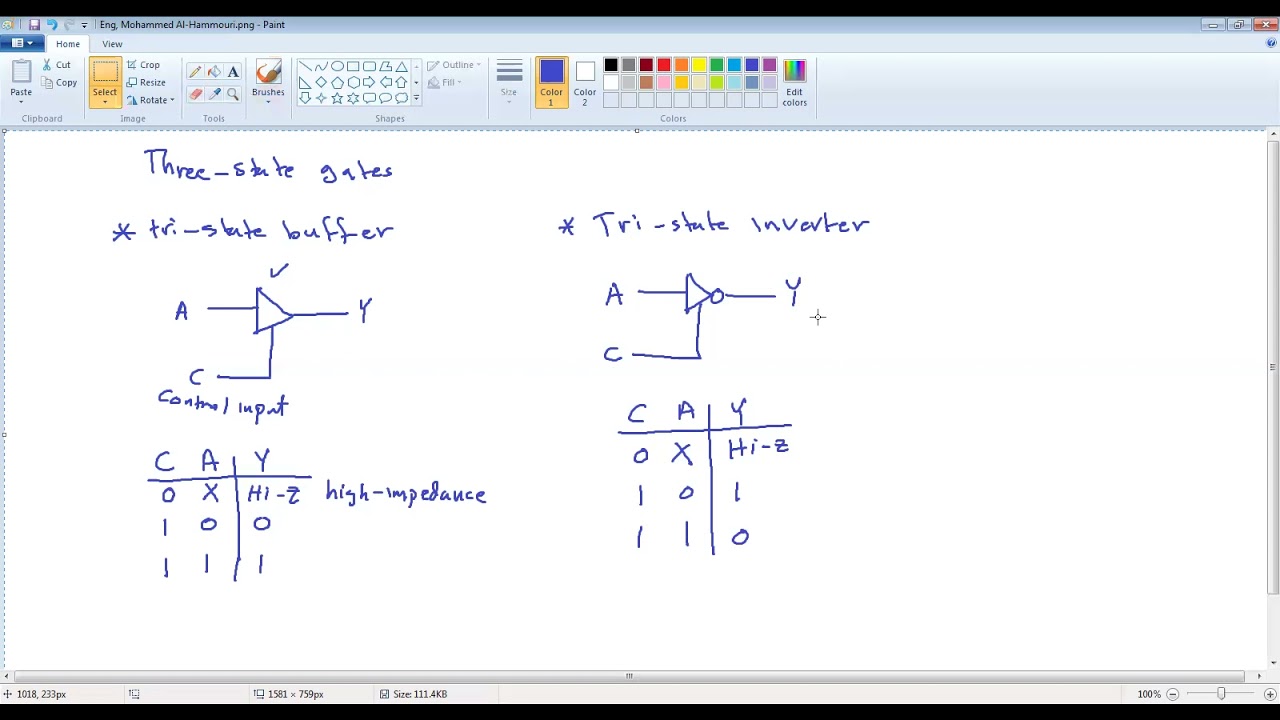 Eng, Mohammed Al-Hammouri.png - Paint
Home View
Paste
Cut
Copy
Clipboard
Select
Crop
Resize
Rotate
Image
Tools
Brushes
Outline
Fill
Shapes
Size
Color 1
Color 2
Edit colors
Colors
Three-state gates
* tri-state buffer
A Y
C
Control input
C A Y
0 X Hi-Z high-impedance
1 0 0
1 1 1
* Tri-state inverter
A Y
C
C A Y
0 X Hi-Z
1 0 1
1 1 0
1018, 233px
1581 × 759px
Size: 111.4KB
100%